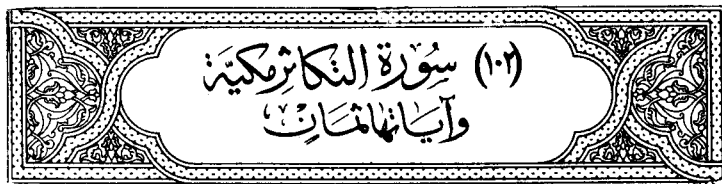 (١٠٢) سُورَة التكاثر مكيَّة
وآياتها ثمَانِ